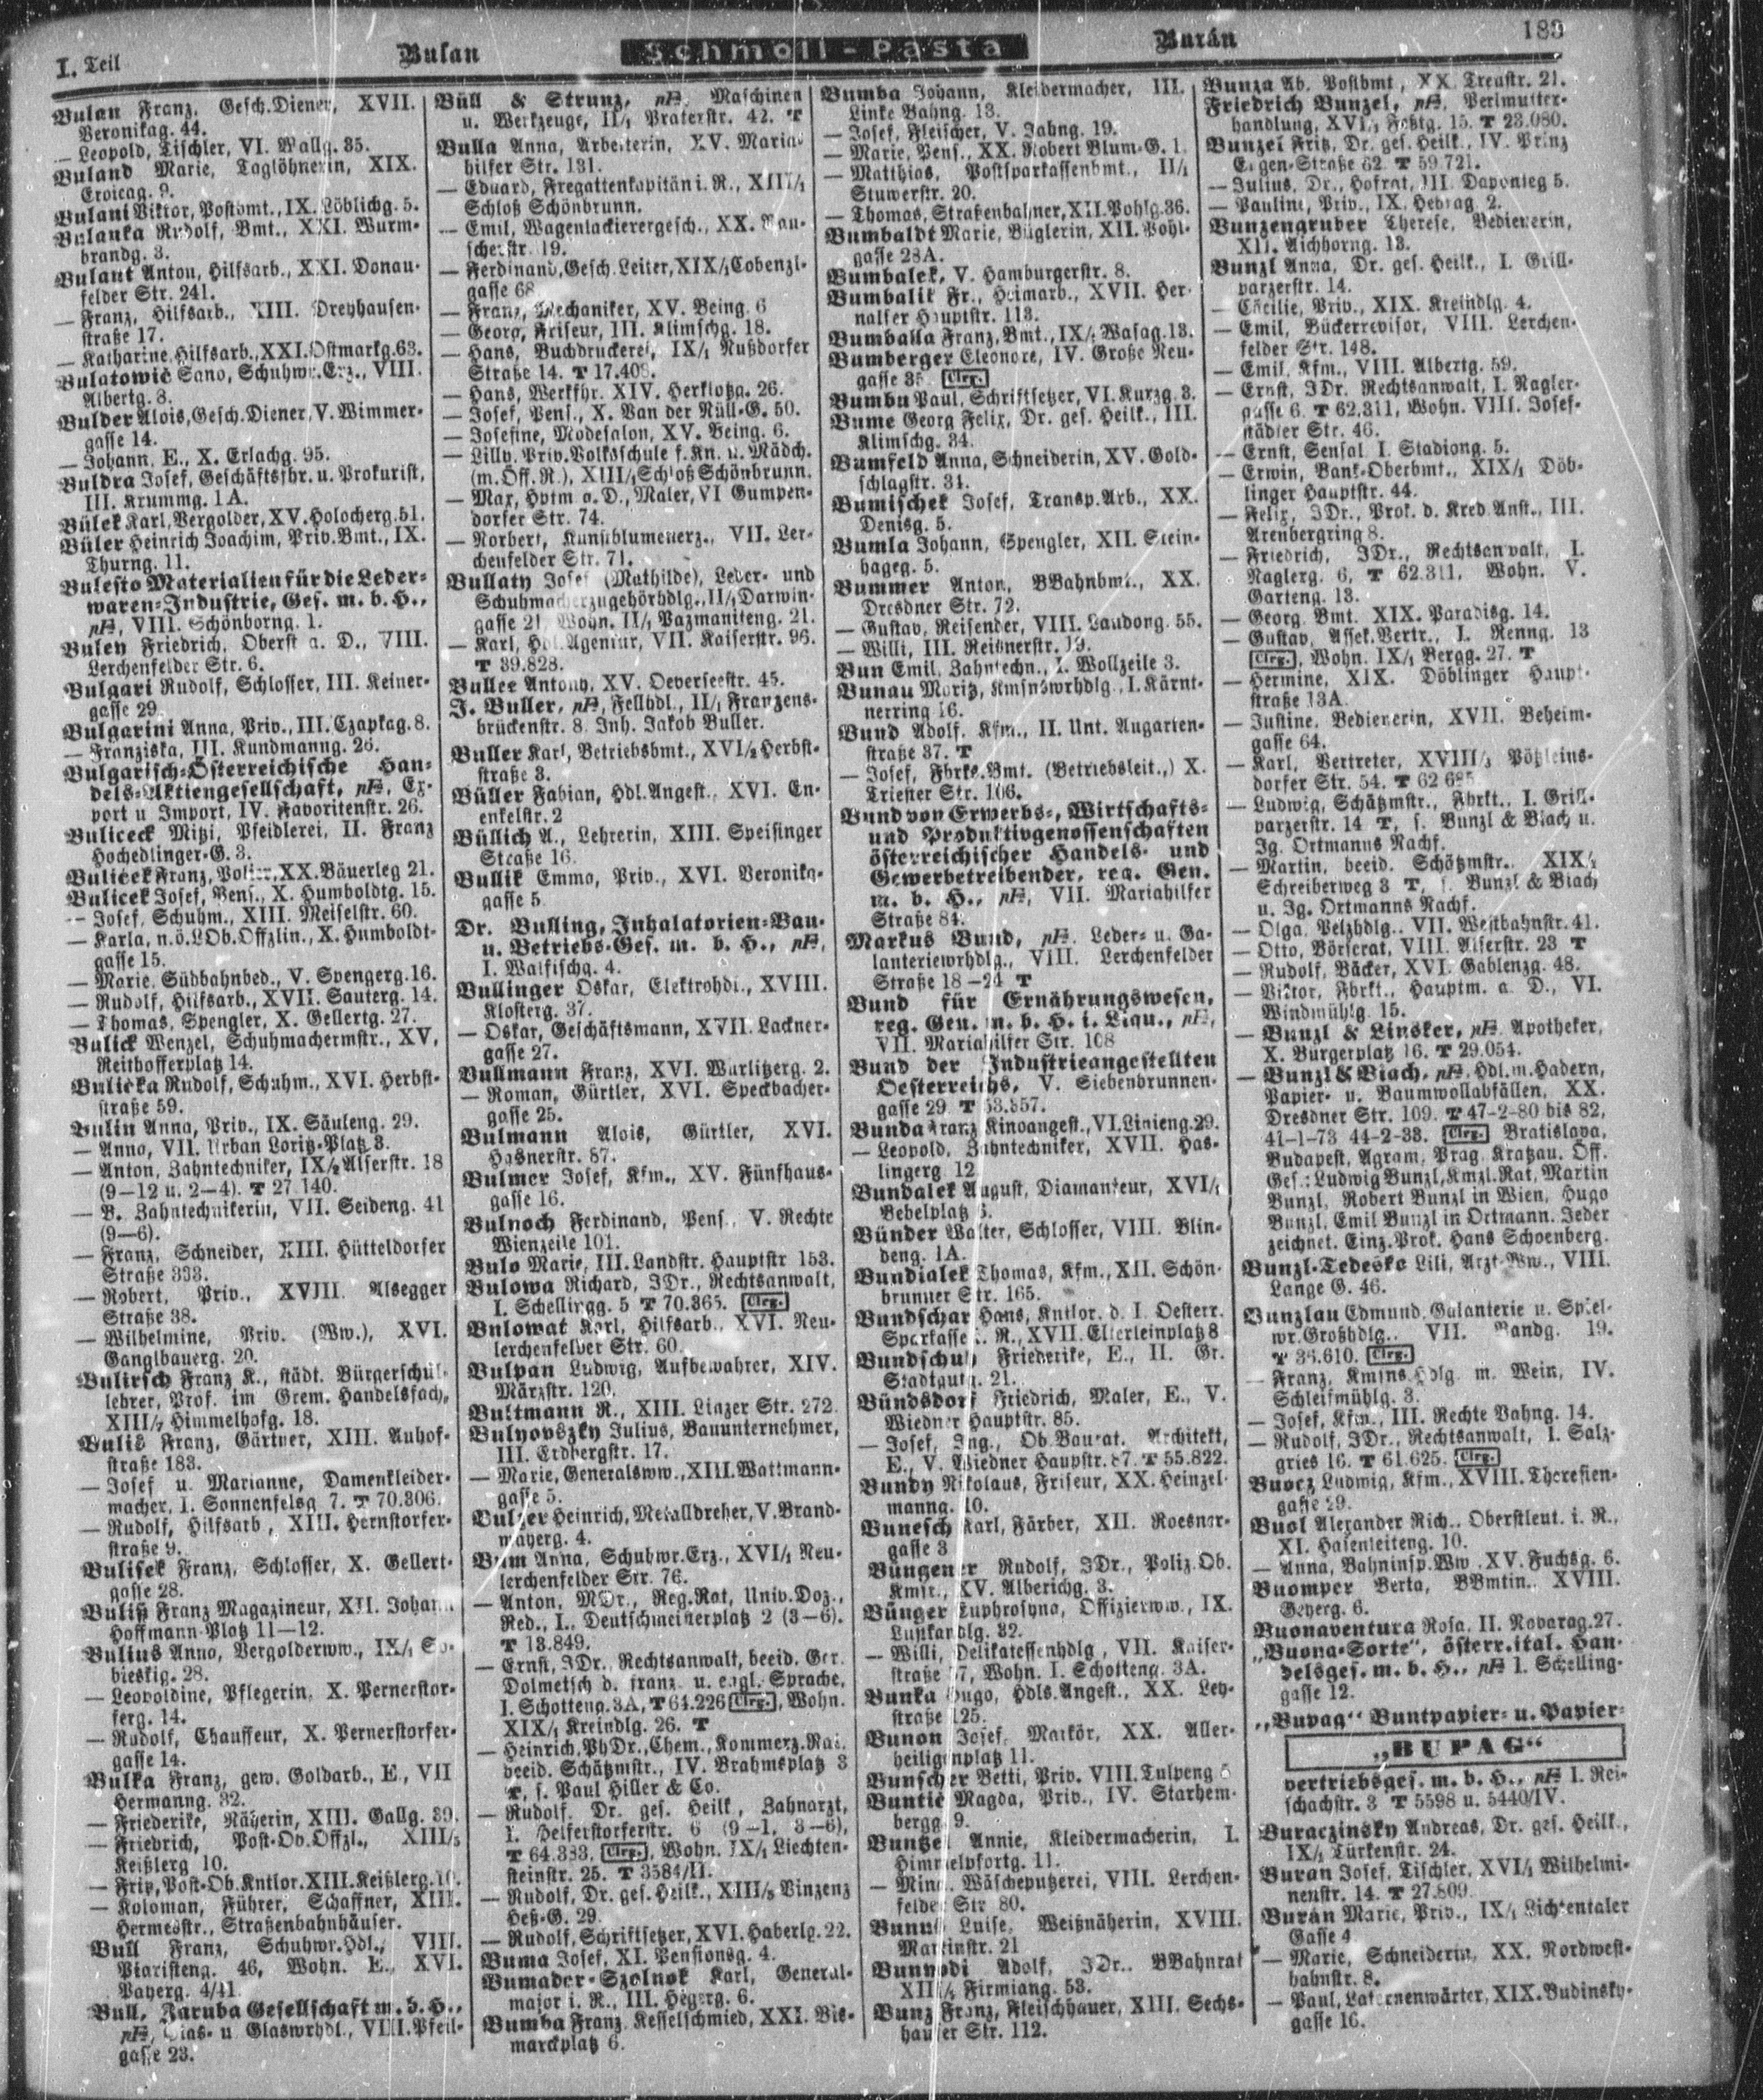 I. Teil
Bulan
Schmoll-Pasta
Burán
189
Bulan Franz, Gesch.Diener, XVII.
Veronikag. 44.
— Leopold, Tischler, VI. Wallg. 35.
Buland Marie, Taglöhnerin, XIX.
Eroicag. 9.
Bulani Viktor, Postbmt., IX. Löblichg. 5.
Bulanka Rudolf, Bmt., XXI. Wurm-
brandg. 3.
Bulant Anton, Hilfsarb., XXI. Donau-
felder Str. 241.
— Franz, Hilfsarb., XIII. Dreyhausen-
straße 17.
— Katharine, Hilfsarb., XXI. Ostmarkg. 63.
Bulatowić Sano, Schuhwr.Erz., VIII.
Albertg. 8.
Bulder Alois, Gesch.Diener, V. Wimmer-
gasse 14.
— Johann, E., X. Erlachg. 95.
Buldra Josef, Geschäftsfhr. u. Prokurist,
III. Krummg. 1A.
Bülek Karl, Vergolder, XV. Holocherg. 51.
Büler Heinrich Joachim, Priv.Bmt., IX.
Thurng. 11.
Bulesto Materialien für die Leder-
waren-Industrie, Ges. m. b. H.,
pH, VIII. Schönborng. 1.
Buley Friedrich, Oberst a. D., VIII.
Lerchenfelder Str. 6.
Bulgari Rudolf, Schlosser, III. Keiner-
gasse 29.
Bulgarini Anna, Priv., III. Czapkag. 8.
— Franziska, III. Kundmanng. 26.
Bulgarisch-Österreichische Han-
dels-Aktiengesellschaft, pH, Ex-
port u Import, IV. Favoritenstr. 26.
Buliceck Mitzi, Pfeidlerei, II. Franz
Hochedlinger-G. 3.
Buliček Franz, Polier, XX. Bäuerleg 21.
Bulicek Josef, Pens., X. Humboldtg. 15.
— Josef, Schuhm., XIII. Meiselstr. 60.
— Karla, n.ö.LOb.Offzlin., X. Humboldt-
gasse 15.
— Marie, Südbahnbed., V. Spengerg. 16.
— Rudolf, Hilfsarb., XVII. Sauterg. 14.
— Thomas, Spengler, X. Gellertg. 27.
Bulick Wenzel, Schuhmachermstr., XV.
Reithofferplatz 14.
Bulička Rudolf, Schuhm., XVI. Herbst-
straße 59.
Bulin Anna, Priv., IX. Säuleng. 29.
— Anna, VII. Urban Loritz-Platz 3.
— Anton, Zahntechniker, IX/2 Alserstr. 18
(9—12 u. 2—4). T 27.140.
— B. Zahntechnikerin, VII. Seideng. 41
(9—6).
— Franz, Schneider, XIII. Hütteldorfer
Straße 333.
— Robert, Priv., XVIII. Alsegger
Straße 38.
— Wilhelmine, Priv. (Ww.), XVI.
Ganglbauerg. 20.
Bulirsch Franz K., städt. Bürgerschul-
lehrer, Prof. im Grem. Handelsfach,
XIII/2 Himmelhofg. 18.
Bulis Franz, Gärtner, XIII. Auhof-
straße 183.
— Josef u. Marianne, Damenkleider-
macher, I. Sonnenfelsg 7. T 70.306.
— Rudolf, Hilfsarb., XIII. Hernstorfer-
straße 9.
Bulisek Franz, Schlosser, X. Gellert-
gasse 28.
Buliß Franz Magazineur, XII. Johann
Hoffmann-Platz 11—12.
Bulius Anna, Vergolderww., IX/1 So-
bieskig. 28.
— Leopoldine, Pflegerin, X. Pernerstor-
ferg. 14.
— Rudolf, Chauffeur, X. Pernerstorfer-
gasse 14.
Bulka Franz, gew. Goldarb., E., VII
Hermanng. 32.
— Friederike, Näherin, XIII. Gallg. 39.
— Friedrich, Post-Ob.Offzl., XIII/5
Keißlerg 10.
— Fritz, Post-Ob.Kntlor. XIII. Keißlerg. 10.
— Koloman, Führer, Schaffner, XIII.
Hermesstr., Straßenbahnhäuser.
Bull Franz, Schuhwr.Hdl., VIII.
Piaristeng. 46, Wohn. E., XVI.
Payerg. 4/41.
Bull, Zaruba Gesellschaft m. b. H.,
pH, Glas- u Glaswrhdl., VIII. Pfeil-
gasse 23.
Büll & Strunz, pH, Maschinen
u. Werkzeuge, II/1 Praterstr. 42. T
Bulla Anna, Arbeiterin, XV. Maria-
hilfer Str. 131.
— Eduard, Fregattenkapitän i. R., XIII/1
Schloß Schönbrunn.
— Emil, Wagenlackierergesch., XX. Rau-
scherstr. 19.
— Ferdinand, Gesch.Leiter, XIX/1 Cobenzl-
gasse 68
— Franz, Mechaniker, XV. Being. 6
— Georg, Friseur, III. Klimschg. 18.
— Hans, Buchdruckerei, IX/1 Nußdorfer
Straße 14. T 17.408.
— Hans, Werkfhr. XIV. Herklotzg. 26.
— Josef, Pens., X. Van der Nüll-G. 50.
— Josefine, Modesalon, XV. Being. 6.
— Lilly, Priv.Volksschule f. Kn. u. Mädch.
(m. Öff. R.), XIII/1 Schloß Schönbrunn.
— Max, Hptm a. D., Maler, VI Gumpen-
dorfer Str. 74.
— Norbert, Kunstblumenerz., VII. Ler-
chenfelder Str. 71.
Bullaty Josef (Mathilde), Leder- und
Schuhmacherzugehörhdlg., II/1 Darwin-
gasse 21, Wohn. II/1 Pazmaniteng. 21.
— Karl, Hdl.Agentur, VII. Kaiserstr. 96.
T 39.828.
Bullee Antony, XV. Oeverseestr. 45.
J. Buller, pH, Fellhdl., II/1 Franzens-
brückenstr. 8. Inh. Jakob Buller.
Buller Karl, Betriebsbmt., XVI/2 Herbst-
straße 3.
Büller Fabian, Hdl.Angest., XVI. En-
enkelstr. 2
Büllich A., Lehrerin, XIII. Speisinger
Straße 16.
Bullik Emma, Priv., XVI. Veronika-
gasse 5
Dr. Bulling, Inhalatorien-Bau-
u. Betriebs-Ges. m. b. H., pH,
I. Walfischg. 4.
Bullinger Oskar, Elektrohdl., XVIII.
Klosterg. 37.
— Oskar, Geschäftsmann, XVII. Lackner-
gasse 27.
Bullmann Franz, XVI. Wurlitzerg. 2.
— Roman, Gürtler, XVI. Speckbacher-
gasse 25.
Bulmann Alois, Gürtler, XVI.
Hasnerstr. 87.
Bulmer Josef, Kfm., XV. Fünfhaus-
gasse 16.
Bulnoch Ferdinand, Pens., V. Rechte
Wienzeile 101.
Bulo Marie, III. Landstr. Hauptstr 153.
Bulowa Richard, JDr., Rechtsanwalt,
I. Schellingg. 5 T 70.365. Clrg.
Bulowat Karl, Hilfsarb., XVI. Neu-
lerchenfelder Str. 60.
Bulpan Ludwig, Aufbewahrer, XIV.
Märzstr. 120.
Bultmann R., XIII. Linzer Str. 272.
Bulyovszky Julius, Bauunternehmer,
III. Erdbergstr. 17.
— Marie, Generalsww., XIII. Wattmann-
gasse 5.
Bulzer Heinrich, Metalldreher, V. Brand-
mayerg. 4.
Bum Anna, Schuhwr.Erz., XVI/1 Neu-
lerchenfelder Str. 76.
— Anton, MDr., Reg.Rat, Univ.Doz.,
Red., I., Deutschmeisterplatz 2 (3—6).
T 13.849.
— Ernst, JDr., Rechtsanwalt, beeid. Ger.
Dolmetsch d. franz. u. engl. Sprache,
I. Schotteng. 3A, T 64.226 Clrg., Wohn.
XIX/1 Kreindlg. 26. T
— Heinrich, PhDr., Chem., Kommerz.Rat,
beeid. Schätzmstr., IV. Brahmsplatz 3
T, s. Paul Hiller & Co.
— Rudolf, Dr. ges. Heilk., Zahnarzt,
I. Helferstorferstr. 6 (9—1, 3—6),
T 64.383, Clrg., Wohn. IX/1 Liechten-
steinstr. 25. T 3584/II.
— Rudolf, Dr. ges. Heilk., XIII/5 Vinzenz
Heß-G. 29.
— Rudolf, Schriftsetzer, XVI. Haberlg. 22.
Buma Josef, XI. Pensionsg. 4.
Bumader-Szolnok Karl, General-
major i. R., III. Hegerg. 6.
Bumba Franz, Kesselschmied, XXI. Bis-
marckplatz 6.
Bumba Johann, Kleidermacher, III.
Linke Bahng. 13.
— Josef, Fleischer, V. Jahng. 19.
— Marie, Pens., XX. Robert Blum-G. 1.
— Matthias, Postsparkassenbmt., II/1
Stuwerstr. 20.
— Thomas, Straßenbahner, XII. Pohlg. 36.
Bumbaldt Marie, Büglerin, XII. Pohl-
gasse 28A.
Bumbalek, V. Hamburgerstr. 8.
Bumbalik Fr., Heimarb., XVII. Her-
nalser Hauptstr. 113.
Bumballa Franz, Bmt., IX/1 Wasag. 13.
Bumberger Eleonore, IV. Große Neu-
gasse 35. Clrg.
Bumbu Paul, Schriftsetzer, VI. Kurzg. 3.
Bume Georg Felix, Dr. ges. Heilk., III.
Klimschg. 34.
Bumfeld Anna, Schneiderin, XV. Gold-
schlagstr. 31.
Bumischek Josef, Transp.Arb., XX.
Denisg. 5.
Bumla Johann, Spengler, XII. Stein-
hageg. 5.
Bummer Anton, BBahnbmt., XX.
Dresdner Str. 72.
— Gustav, Reisender, VIII. Laudong. 55.
— Willi, III. Reisnerstr. 19.
Bun Emil, Zahntechn., I. Wollzeile 3.
Bunau Moritz, Kmsnswrhdlg., I. Kärnt-
nerring 16.
Bund Adolf, Kfm., II. Unt. Augarten-
straße 37. T
— Josef, Fbrks.Bmt. (Betriebsleit.,) X.
Triester Str. 106.
Bund von Erwerbs-, Wirtschafts-
und Produktivgenossenschaften
österreichischer Handels- und
Gewerbetreibender, reg. Gen.
m. b. H., pH, VII. Mariahilfer
Straße 84.
Markus Bund, pH, Leder- u. Ga-
lanteriewrhdlg., VIII. Lerchenfelder
Straße 18—24 T
Bund für Ernährungswesen,
reg. Gen. m. b. H. i. Liqu., pH,
VII. Mariahilfer Str. 108
Bund der Industrieangestellten
Oesterreichs, V. Siebenbrunnen-
gasse 29 T 53.857.
Bunda Franz Kinoangest., VI. Linieng. 29.
— Leopold, Zahntechniker, XVII. Has-
lingerg. 12
Bundalek August, Diamanteur, XVI/1
Bebelplatz
Bünder Walter, Schlosser, VIII. Blin-
deng. 1A.
Bundialek Thomas, Kfm., XII. Schön-
brunner Str. 165.
Bundschar Hans, Kntlor. d. I. Oesterr.
Sparkasse i. R., XVII. Elterleinplatz 8
Bundschuh Friederike, E., II. Gr.
Stadtgutg. 21.
Bündsdorf Friedrich, Maler, E., V.
Wiedner Hauptstr. 85.
— Josef, Ing., Ob.Baurat, Architekt,
E., V. Wiedner Hauptstr. 87. T 55.822.
Bundy Nikolaus, Friseur, XX. Heinzel-
manng. 10.
Bunesch Karl, Färber, XII. Roesner-
gasse 3
Büngener Rudolf, JDr., Poliz.Ob.
Kmsr., XV. Alberichg. 3.
Bünger Euphrosyna, Offizierww., IX.
Lustkandlg. 32.
— Willi, Delikatessenhdlg., VII. Kaiser-
straße 37, Wohn. I. Schotteng. 3A.
Bunka Hugo, Hdls.Angest., XX. Ley-
straße 125.
Bunon Josef, Markör, XX. Aller-
heiligenplatz 11.
Bunscher Betti, Priv. VIII. Tulpeng 5
Buntić Magda, Priv., IV. Starhem-
bergg. 9.
Buntzel Annie, Kleidermacherin, I.
Himmelpfortg. 11.
— Mina, Wäscheputzerei, VIII. Lerchen-
felder Str 80.
Bunus Luise, Weißnäherin, XVIII.
Martinstr. 21
Bunyodi Adolf, JDr., BBahnrat
XIII/ Firmiang. 53.
Bunz Franz, Fleischhauer, XIII. Sechs-
hauser Str. 112.
Bunza Ab. Postbmt., XX. Treustr. 21.
Friedrich Bunzel, pH, Perlmutter-
handlung, XVI/ Feßtg. 15. T 23.080.
Bunzel Fritz, Dr. ges. Heilk., IV. Prinz
Eugen-Straße 62. T 59.721.
— Julius, Dr., Hofrat, III. Daponteg 5.
— Pauline, Priv., IX. Hebrag. 2.
Bunzengruber Therese, Bedienerin,
XII. Aichhorng. 13.
Bunzl Anna, Dr. ges. Heilk., I. Grill-
parzerstr. 14.
— Cäcilie, Priv., XIX. Kreindlg. 4.
— Emil, Bückerrevisor, VIII. Lerchen-
felder Str. 148.
— Emil, Kfm., VIII. Albertg. 59.
— Ernst, JDr. Rechtsanwalt, I. Nagler-
gasse 6. T 62.311, Wohn. VIII. Josef-
städter Str. 46.
— Ernst, Sensal I. Stadiong. 5.
— Erwin, Bank-Oberbmt., XIX/1 Döb-
linger Hauptstr. 44.
— Felix, JDr., Prok. d. Kred.Anst., III.
Arenbergring 8.
— Friedrich, JDr., Rechtsanwalt, I.
Naglerg. 6, T 62.311, Wohn. V.
Garteng. 13.
— Georg, Bmt. XIX. Paradisg. 14.
— Gustav, Assek.Vertr., I. Renng. 13
Clrg., Wohn. IX/1 Bergg. 27. T
— Hermine, XIX. Döblinger Haupt-
straße 13A.
— Justine, Bedienerin, XVII. Beheim-
gasse 64.
— Karl, Vertreter, XVIII/3 Pötzleins-
dorfer Str. 54. T 62 685
— Ludwig, Schätzmstr., Fbrkt., I. Grill-
parzerstr. 14 T, s. Bunzl & Biach u.
Ig. Ortmanns Nachf.
— Martin, beeid. Schätzmstr., XIX/1
Schreiberweg 3 T, s. Bunzl & Biach
u. Ig. Ortmanns Nachf.
— Olga, Pelzhdlg., VII. Westbahnstr. 41.
— Otto, Börserat, VIII. Alserstr. 23 T
— Rudolf, Bäcker, XVI. Gablenzg. 48.
— Viktor, Fbrkt., Hauptm. a. D., VI.
Windmühlg. 15.
— Bunzl & Linsker, pH, Apotheker,
X. Bürgerplatz 16. T 29.054.
— Bunzl & Biach, pH, Hdl. m. Hadern,
Papier- u. Baumwollabfällen, XX.
Dresdner Str. 109. T 47-2-80 bis 82,
41-1-73 44-2-33. Clrg. Bratislava,
Budapest, Agram, Prag, Kratzau. Öff.
Ges.: Ludwig Bunzl, Kmzl.Rat, Martin
Bunzl, Robert Bunzl in Wien, Hugo
Bunzl, Emil Bunzl in Ortmann. Jeder
zeichnet. Einz.Prok. Hans Schoenberg.
Bunzl-Tedesko Lili, Arzt-Ww., VIII.
Lange G. 46.
Bunzlau Edmund, Galanterie u. Spiel-
wr.Großhdlg., VII. Bandg. 19.
T 36.610. Clrg.
— Franz, Kmsns.Hdlg. m. Wein, IV.
Schleifmühlg. 3.
— Josef, Kfm., III. Rechte Bahng. 14.
— Rudolf, JDr., Rechtsanwalt, I. Salz-
gries 16. T 61.625. Clrg.
Buocz Ludwig, Kfm., XVIII. Theresien-
gasse 29.
Buol Alexander Rich., Oberstleut. i. R.,
XI. Hasenleiteng. 10.
— Anna, Bahninsp.Ww. XV. Fuchsg. 6.
Buomper Berta, BBmtin., XVIII.
Geyerg. 6.
Buonaventura Rosa, II. Novarag. 27.
„Buona-Sorte", österr.ital. Han-
delsges. m. b. H., pH I. Schelling-
gasse 12.
„Bupag" Buntpapier- u. Papier-
„BUPAG"
vertriebsges. m. b. H., pH I. Rei-
schachstr. 3 T 5598 u. 5440/IV.
Buraczinsky Andreas, Dr. ges. Heilk.,
IX/1 Türkenstr. 24.
Buran Josef, Tischler, XVI/1 Wilhelmi-
nenstr. 14. T 27.809.
Burán Marie, Priv., IX/1 Lichtentaler
Gasse 4
— Marie, Schneiderin, XX. Nordwest-
bahnstr. 8.
— Paul, Laternenwärter, XIX. Budinsky-
gasse 16.